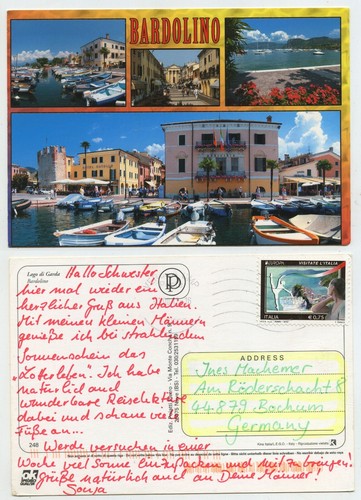 BARDOLINO
Lago di Garda
Bardolino
Hallo Schwester
hier mal wieder ein
herzlicher Gruß aus Italien.
Mit meinen kleinen Männern
genieße ich bei strahlendem
Sonnenschein das
Ich habe
natürlich auch
wunderbare
dabei und schaue viele
Füße an...
Werde versuchen in einer
Woche viel Sonne einzupacken und mitzubringen!
Grüße natürlich auch an Deine Männer!
Sonja
248
P
EUROPA
VISITATE L'ITALIA
ITALIA
€0,75
ADDRESS
Ines Machemer
Am Röderschacht 8
44.879 Bochum
Germany